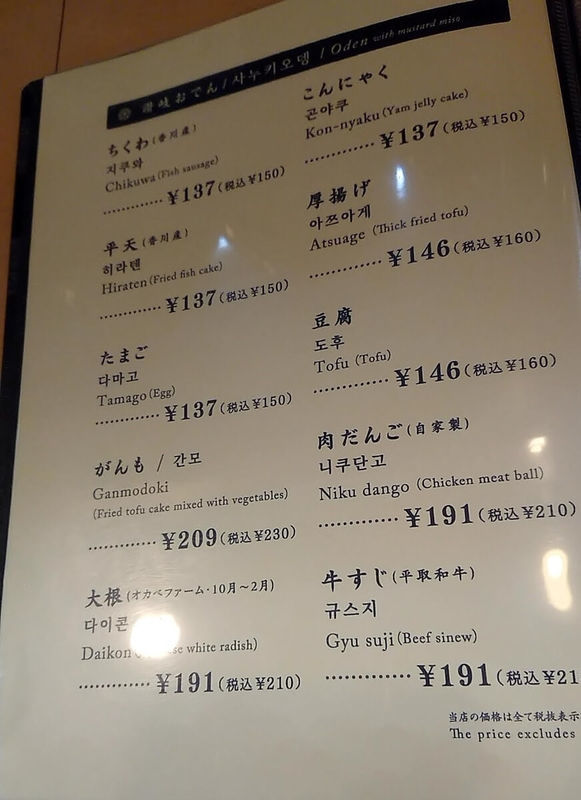 讃岐おでん / 사누키오뎅 / Oden with mustard miso
ちくわ (香川産)
지쿠와
Chikuwa (Fish sausage)
············ ¥137 (税込¥150)
平天 (香川産)
히라텐
Hiraten (Fried fish cake)
············ ¥137 (税込¥150)
たまご
다마고
Tamago (Egg)
············ ¥137 (税込¥150)
がんも / 간모
Ganmodoki
(Fried tofu cake mixed with vegetables)
············ ¥209 (税込¥230)
大根 (オカベファーム・10月～2月)
다이콘
Daikon white radish)
············ ¥191 (税込¥210)
こんにゃく
곤야쿠
Kon-nyaku (Yam jelly cake)
············ ¥137 (税込¥150)
厚揚げ
아쯔아게
Atsuage (Thick fried tofu)
············ ¥146 (税込¥160)
豆腐
도후
Tofu (Tofu)
············ ¥146 (税込¥160)
肉だんご (自家製)
니쿠단고
Niku dango (Chicken meat ball)
············ ¥191 (税込¥210)
牛すじ (平取和牛)
규스지
Gyu suji (Beef sinew)
············ ¥191 (税込¥21
当店の価格は全て税抜表示
The price excludes